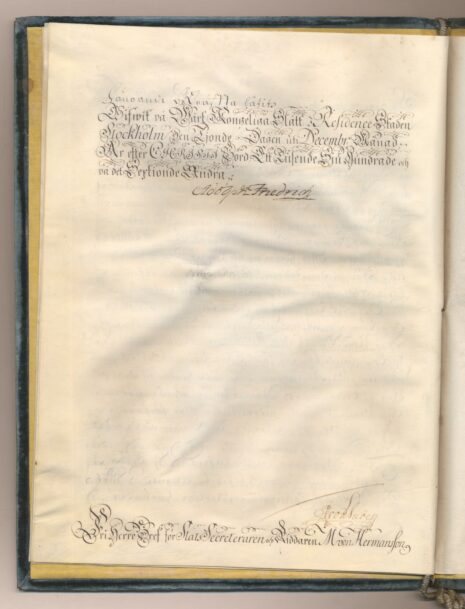 Gifwit på Wårt Kongeliga Slått i Residence Staden
Stockholm den Tijonde Dagen uti Decembr: Månad
År efter CHRISTI Börd Ett Tusende Siu Hundrade och
på det Sextionde Andra.
Adolph Friedrich
Friherre Chef för Stats Secreteraren och Riddaren M von Hermansson